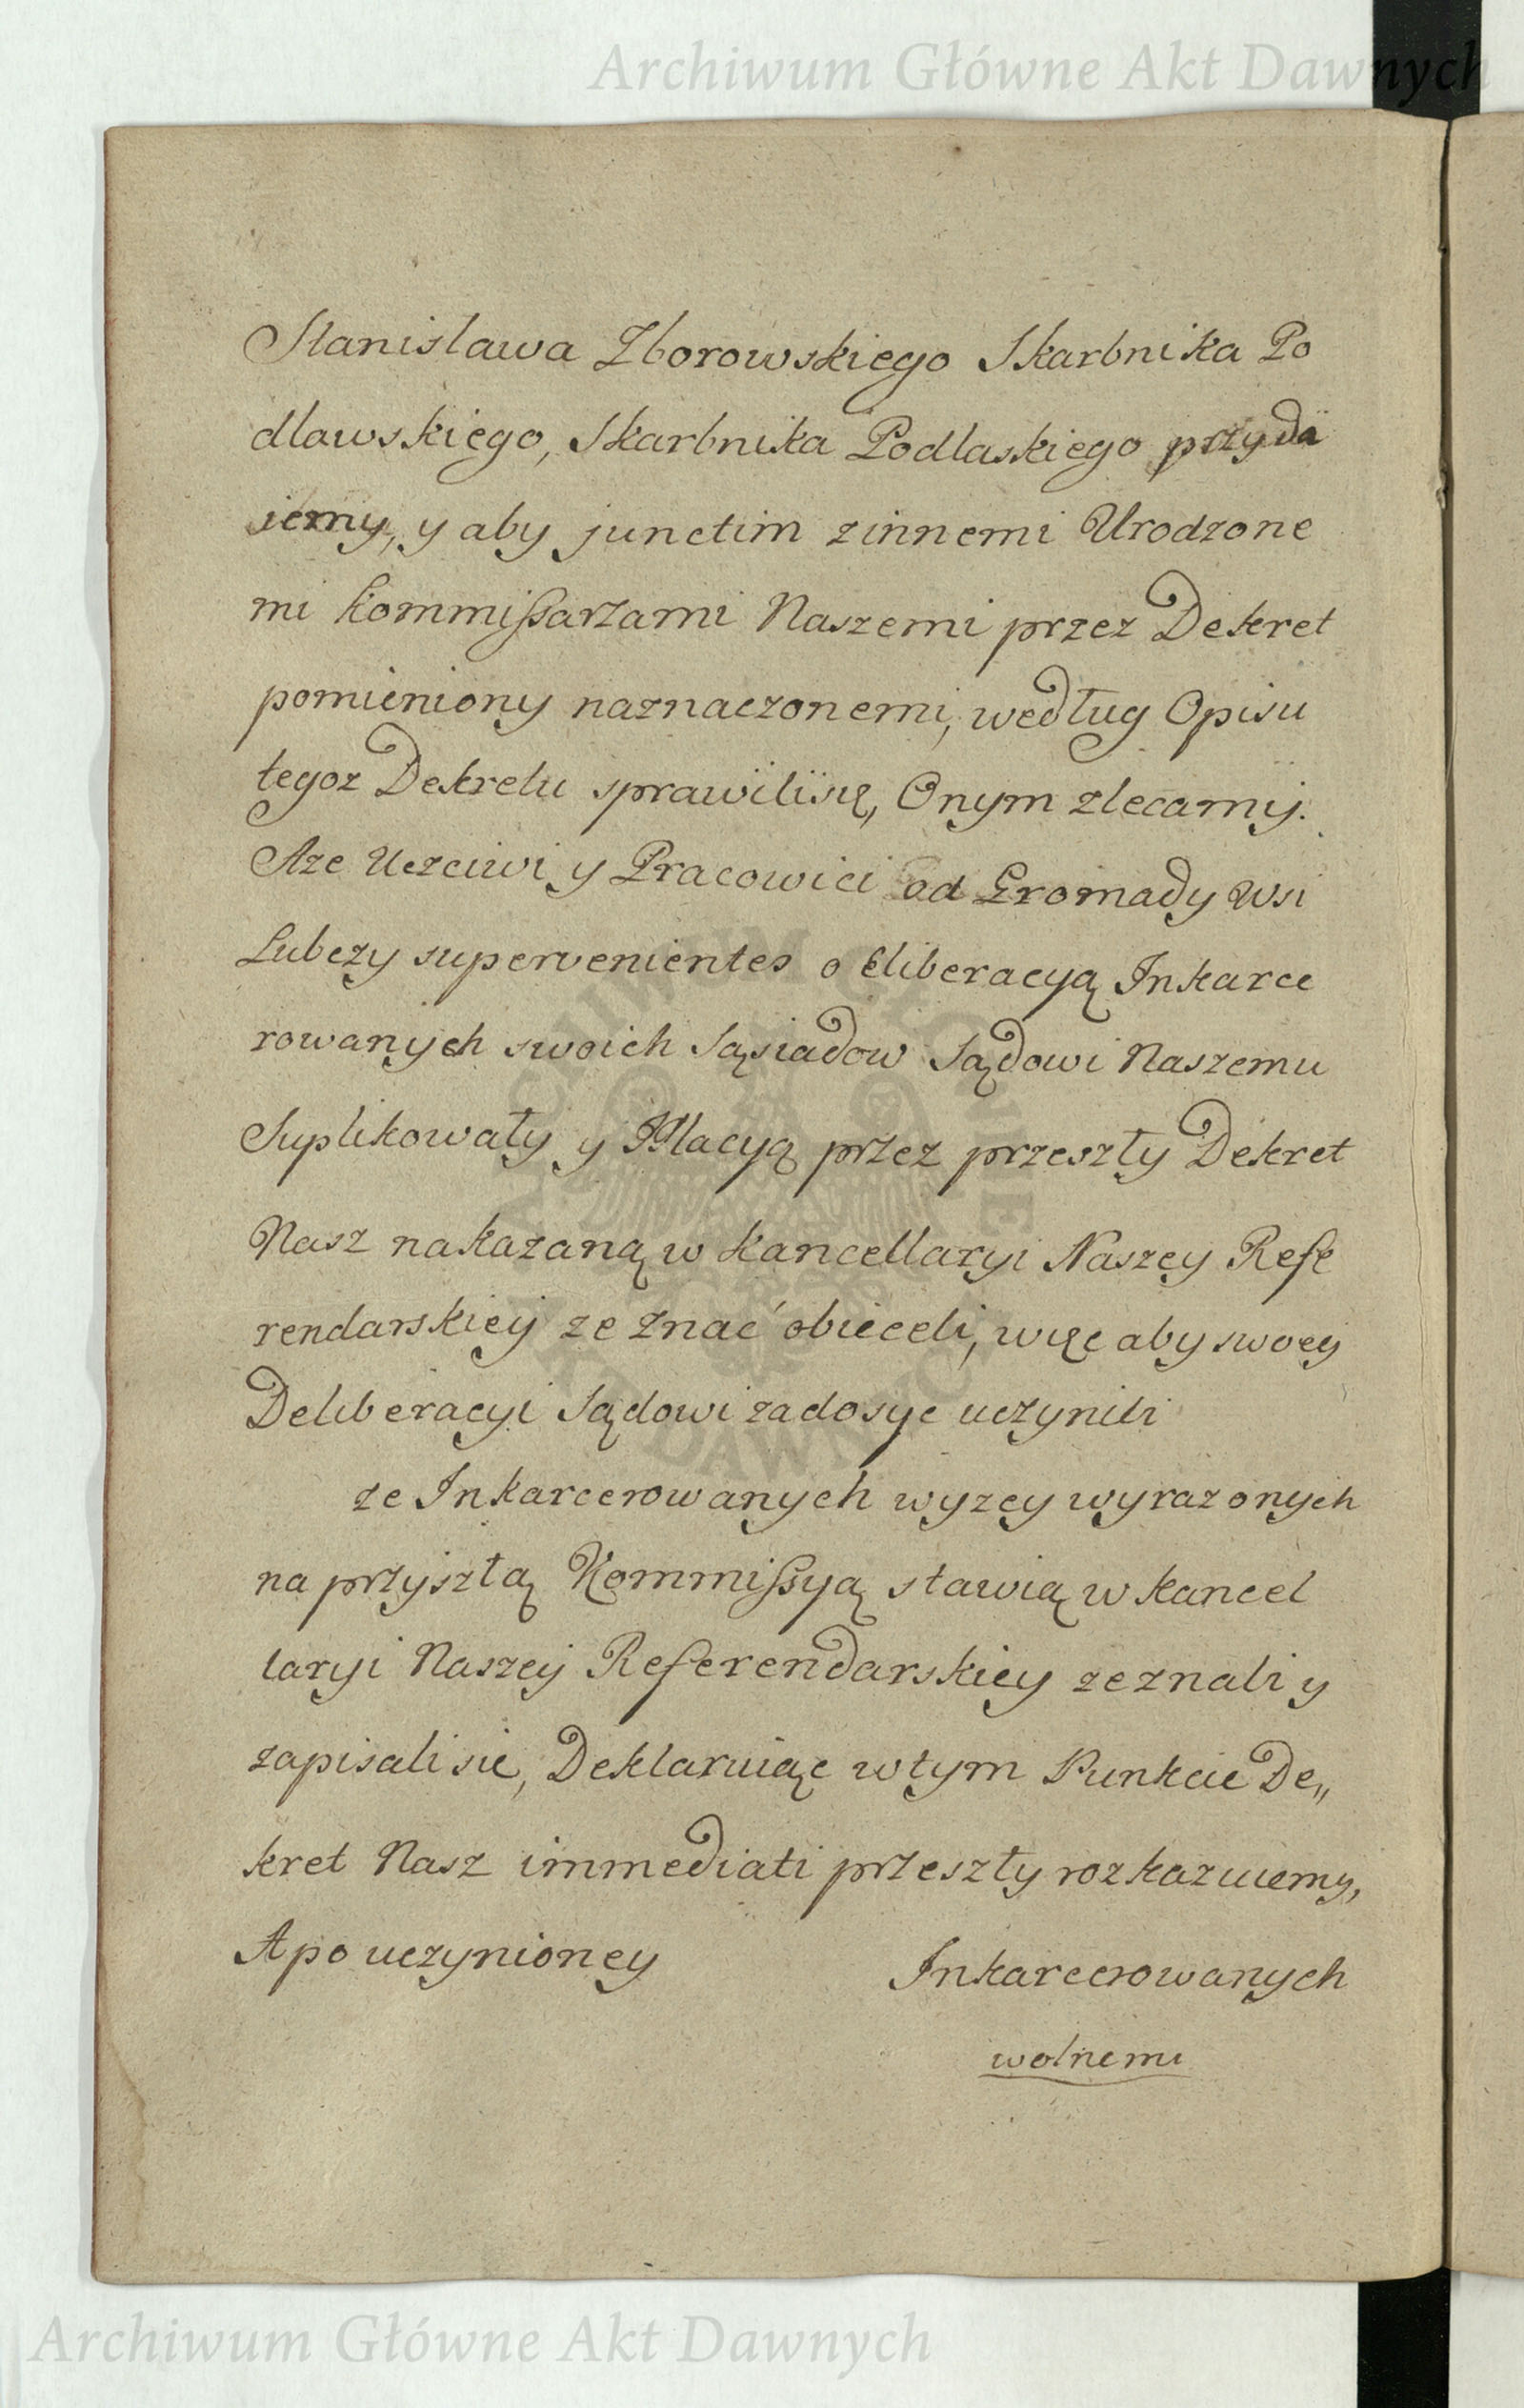 Archiwum Główne Akt Dawnych
Stanislawa Zborowskiego Skarbnika Po
dlawskiego, Skarbnika Podlaskiego przyda
iemy, y aby junctim zinnemi Urodzone
mi kommissarzami Naszemi przez Dekret
pomieniony naznaczonemi, według Opisu
tegoz Dekretu sprawilisię, Onym zlecamy.
Aze Uczciwi y Pracowici od Gromady Wsi
Lubczy supervenientes o Eliberacyą Inkarce
rowanych swoich Sąsiadow Sądowi Naszemu
Suplikowały y przez przeszły Dekret
Nasz nakazaną w kancellaryi Naszey Refe
rendarskiey zeznać obieceli, więc aby swoey
Deliberacyi Sądowi zadosyc uczynili
ze Inkarcerowanych wyzey wyrazonych
na przyszłą Kommissyą stawią w kancel
laryi Naszey Referendarskiey zeznali y
zapisali sie, Deklaruiąc wtym Punkcie De„
kret Nasz immediati przeszły rozkazuiemy,
Apo uczynioney Inkarcerowanych
wolnemu
Archiwum Główne Akt Dawnych